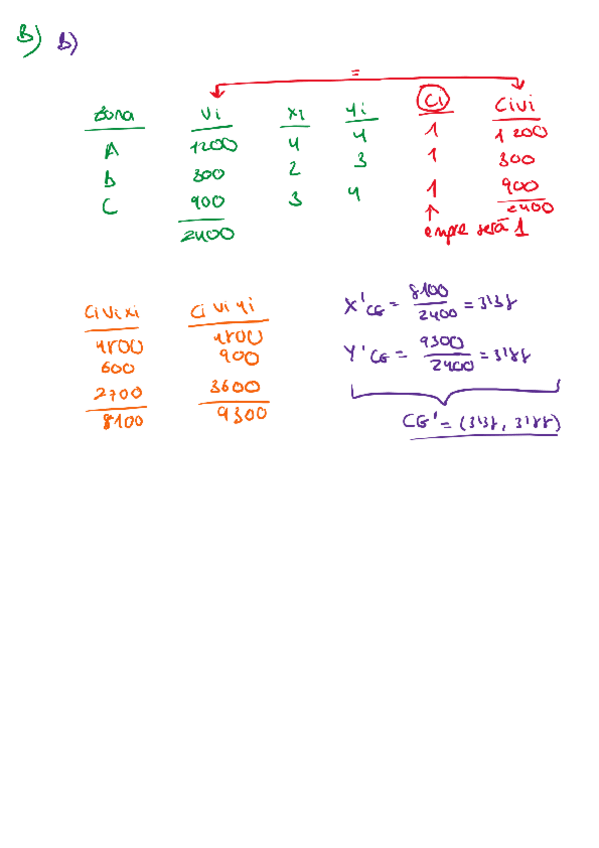 B) b)
=
Zona Vi xi yi Ci CiVi
A 1200 4 4 1 1200
B 300 2 3 1 300
C 900 3 4 1 900
2400 2400
empre será 1
CiVixi CiViyi
4800 4800
600 900
2700 3600
8100 9300
X'CG = 8100 / 2400 = 3'38
Y'CG = 9300 / 2400 = 3'88
CG' = (3'38, 3'88)